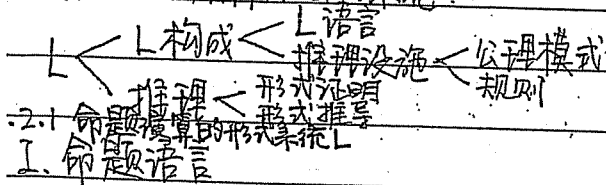 L 语言
L 构成 推理设施 公理模式
L 规则
推理 形式证明
形式推导
2.1 命题演算的形式系统 L
I. 命题语言